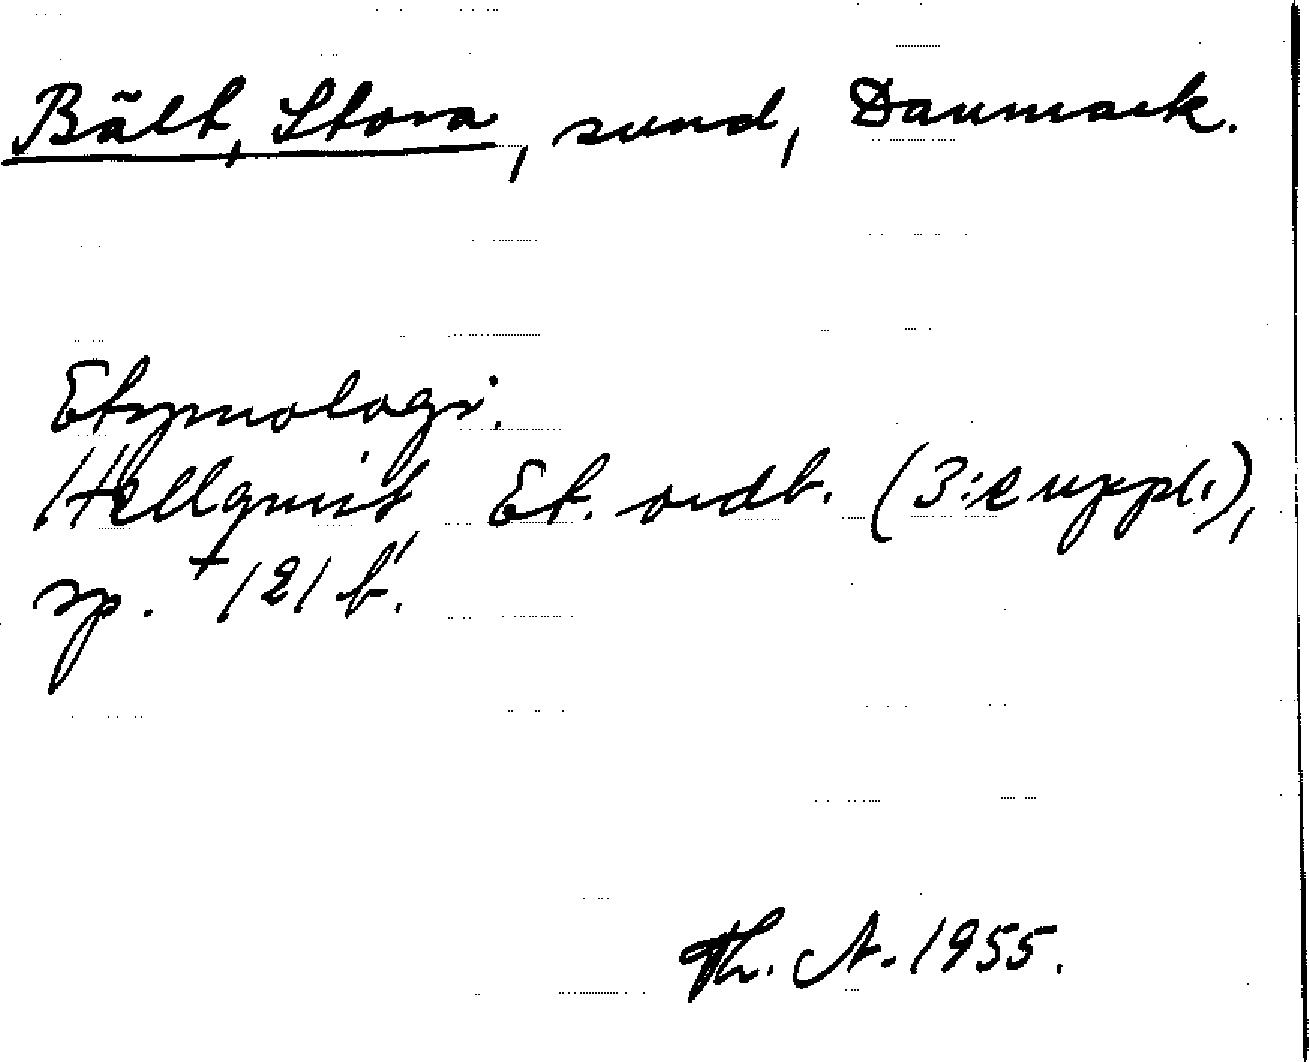 Bält, Stora, sund, Danmark.
Etymologi.
Hellquist Et. ordb. (3:e uppl.),
sp. + 121 b.
Th. A. 1955.